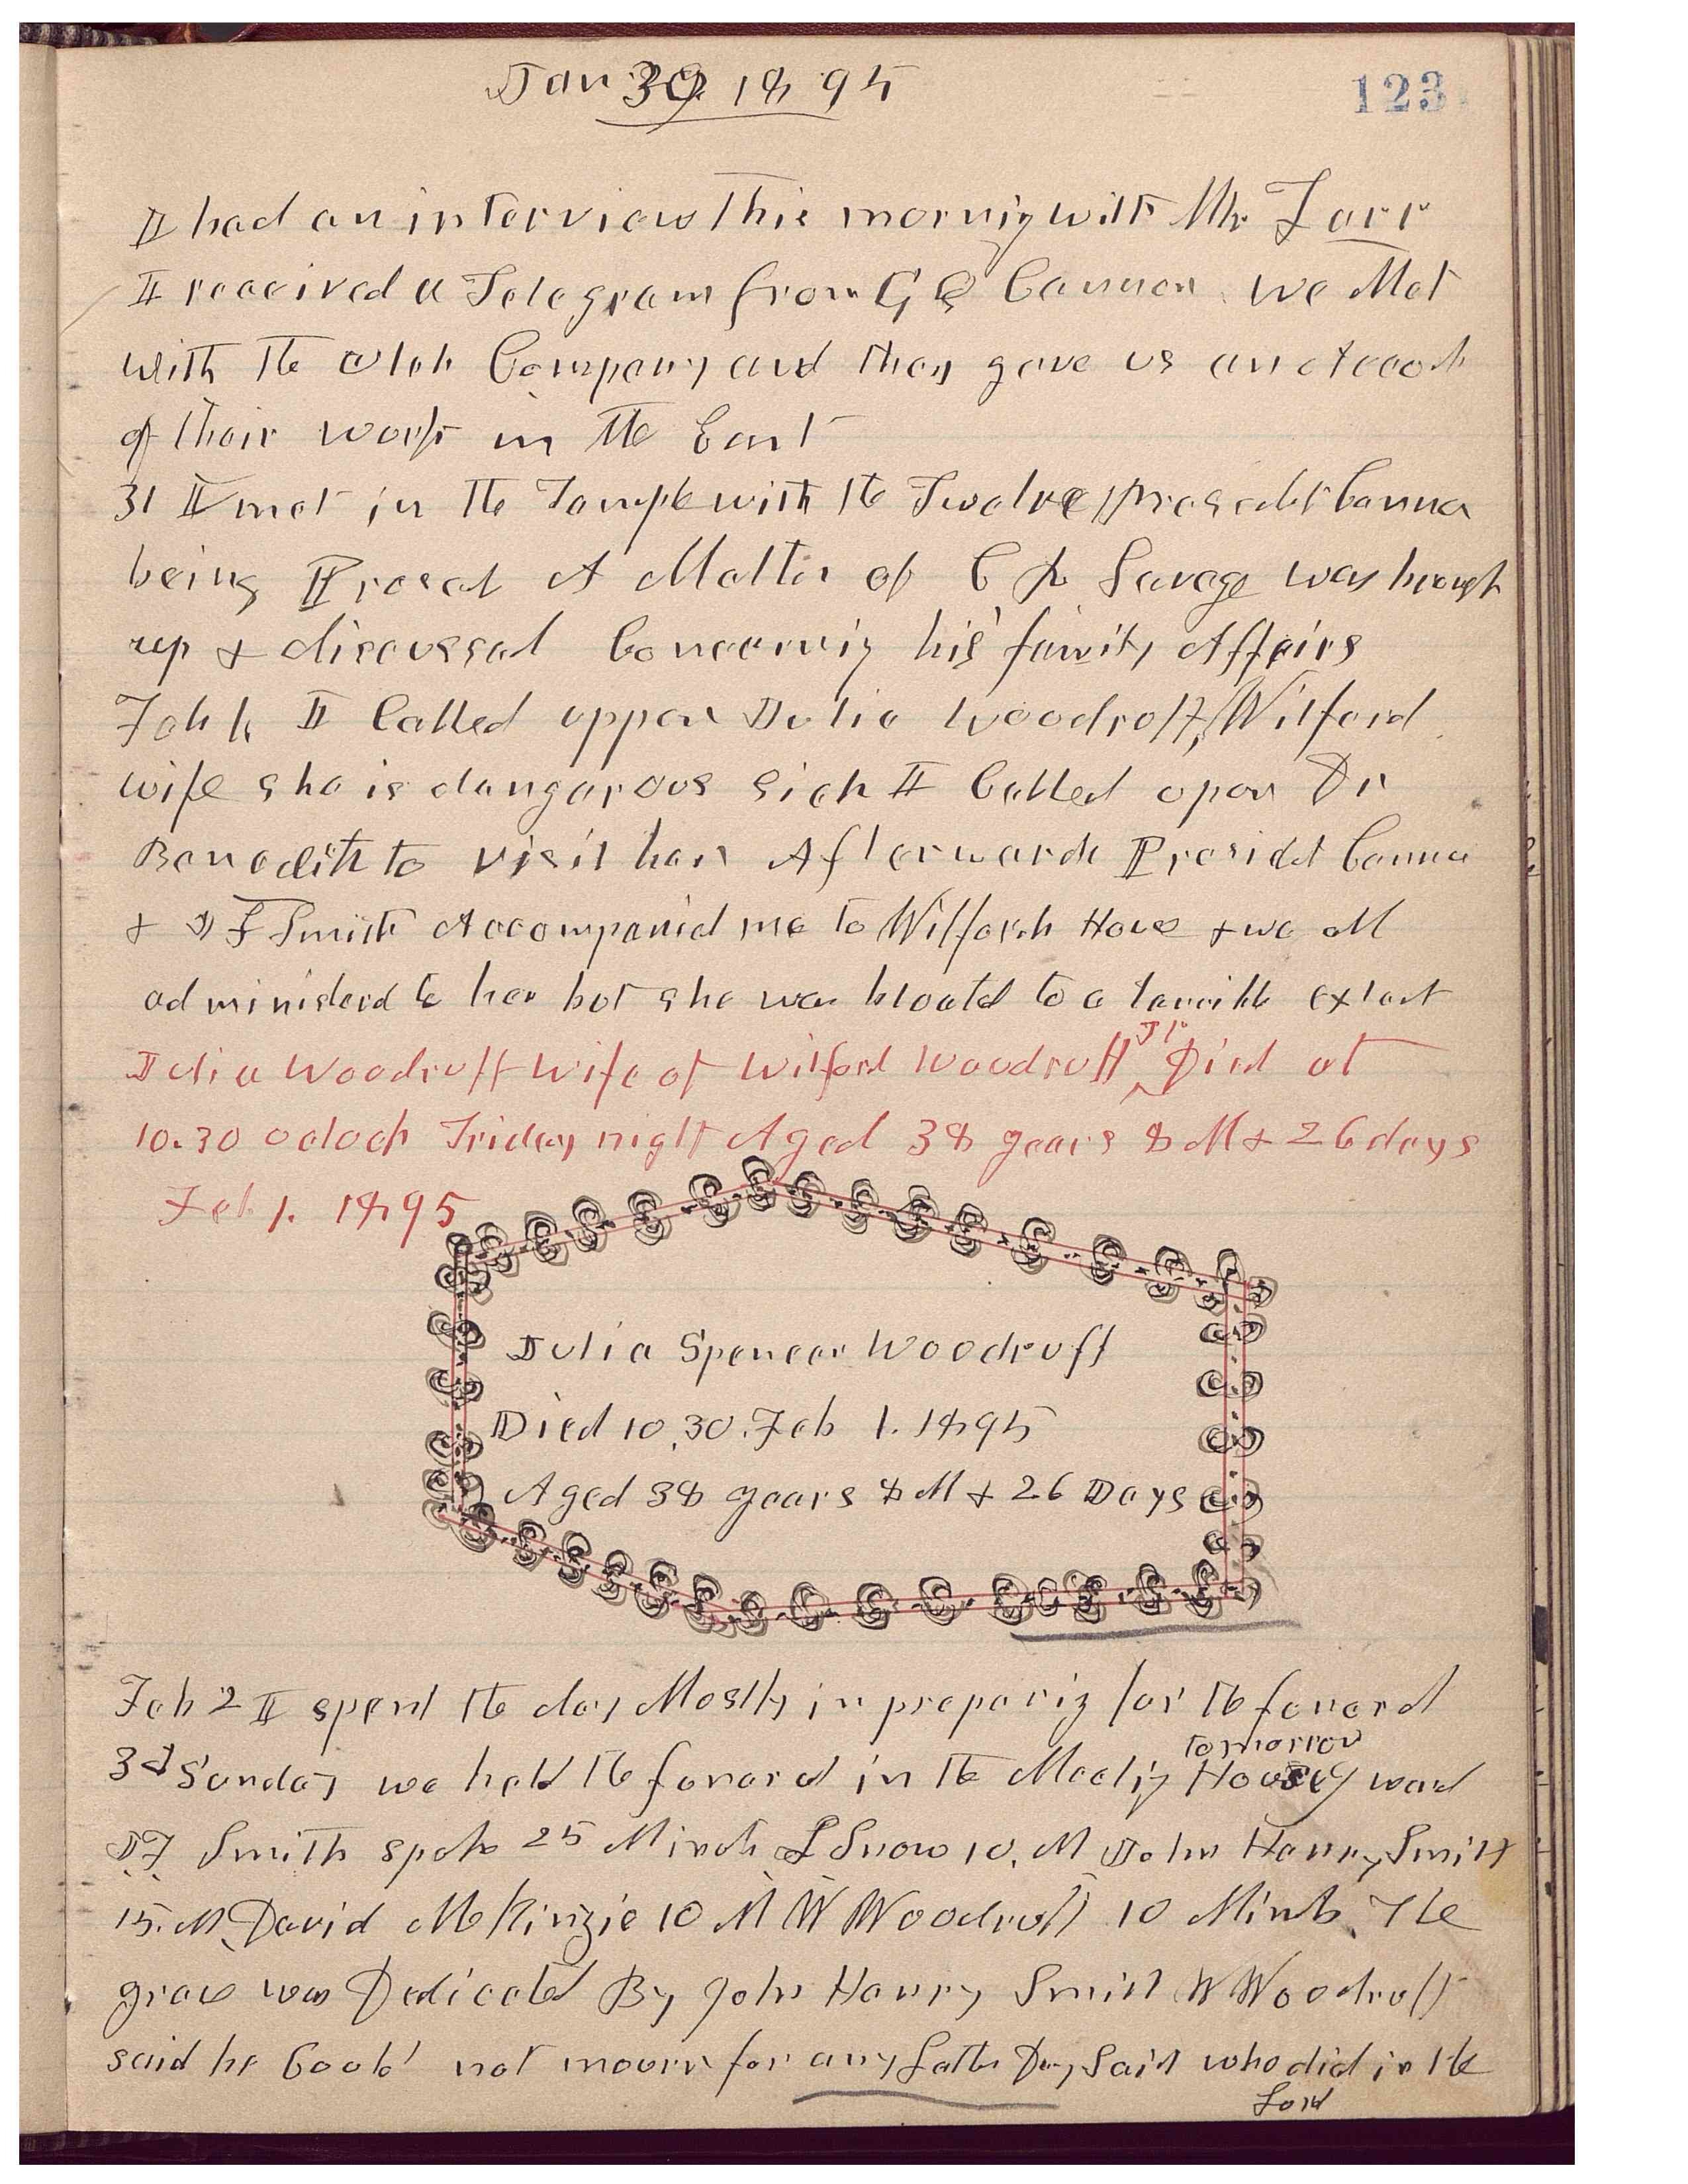 Jan 30 1895
123
I had an interview this morning with Mr
I received a Telegram from G Q Cannon we Met
with the Utah Company and they gave us an account
of their work in the East
31 I met in the Temple with the Twelve Presedet Cannon
being Presat A Matter of C R Savage was brough
up & discussed Concerning his family Affairs
Feb 1, I Called uppon Julia Woodruff, Wilford
wife she is dangarous sick I Called upon Dr
Benedith to visit her Afterwards Presidet Cannon
& J F Smith Accompanied me to Wilfords House & we all
administerd to her but she was bloated to a terrible extent
Julia Woodruff wife of Wilford Woodruff Jr Died at
10.30 oclock Friday night Aged 38 years 8 M & 26 days
Feb 1. 1895
Julia Spencer Woodruff
Died 10.30. Feb 1. 1895
Aged 38 years 8 M & 26 Days
Feb 2 I spent the day Mostly in preparing for the funeral
tomorrow
3d Sunday we held the funeral in the Meeting House ward
JF Smith spoke 25 Minuts L Snow 10. M John Henry Smith
15. M David McKinzie 10 M W Woodruff 10 Minuts The
grave was Dedicated By John Henry Smith W Woodruff
said he Could not mourn for any Latter Day Saint who did in the
Lord